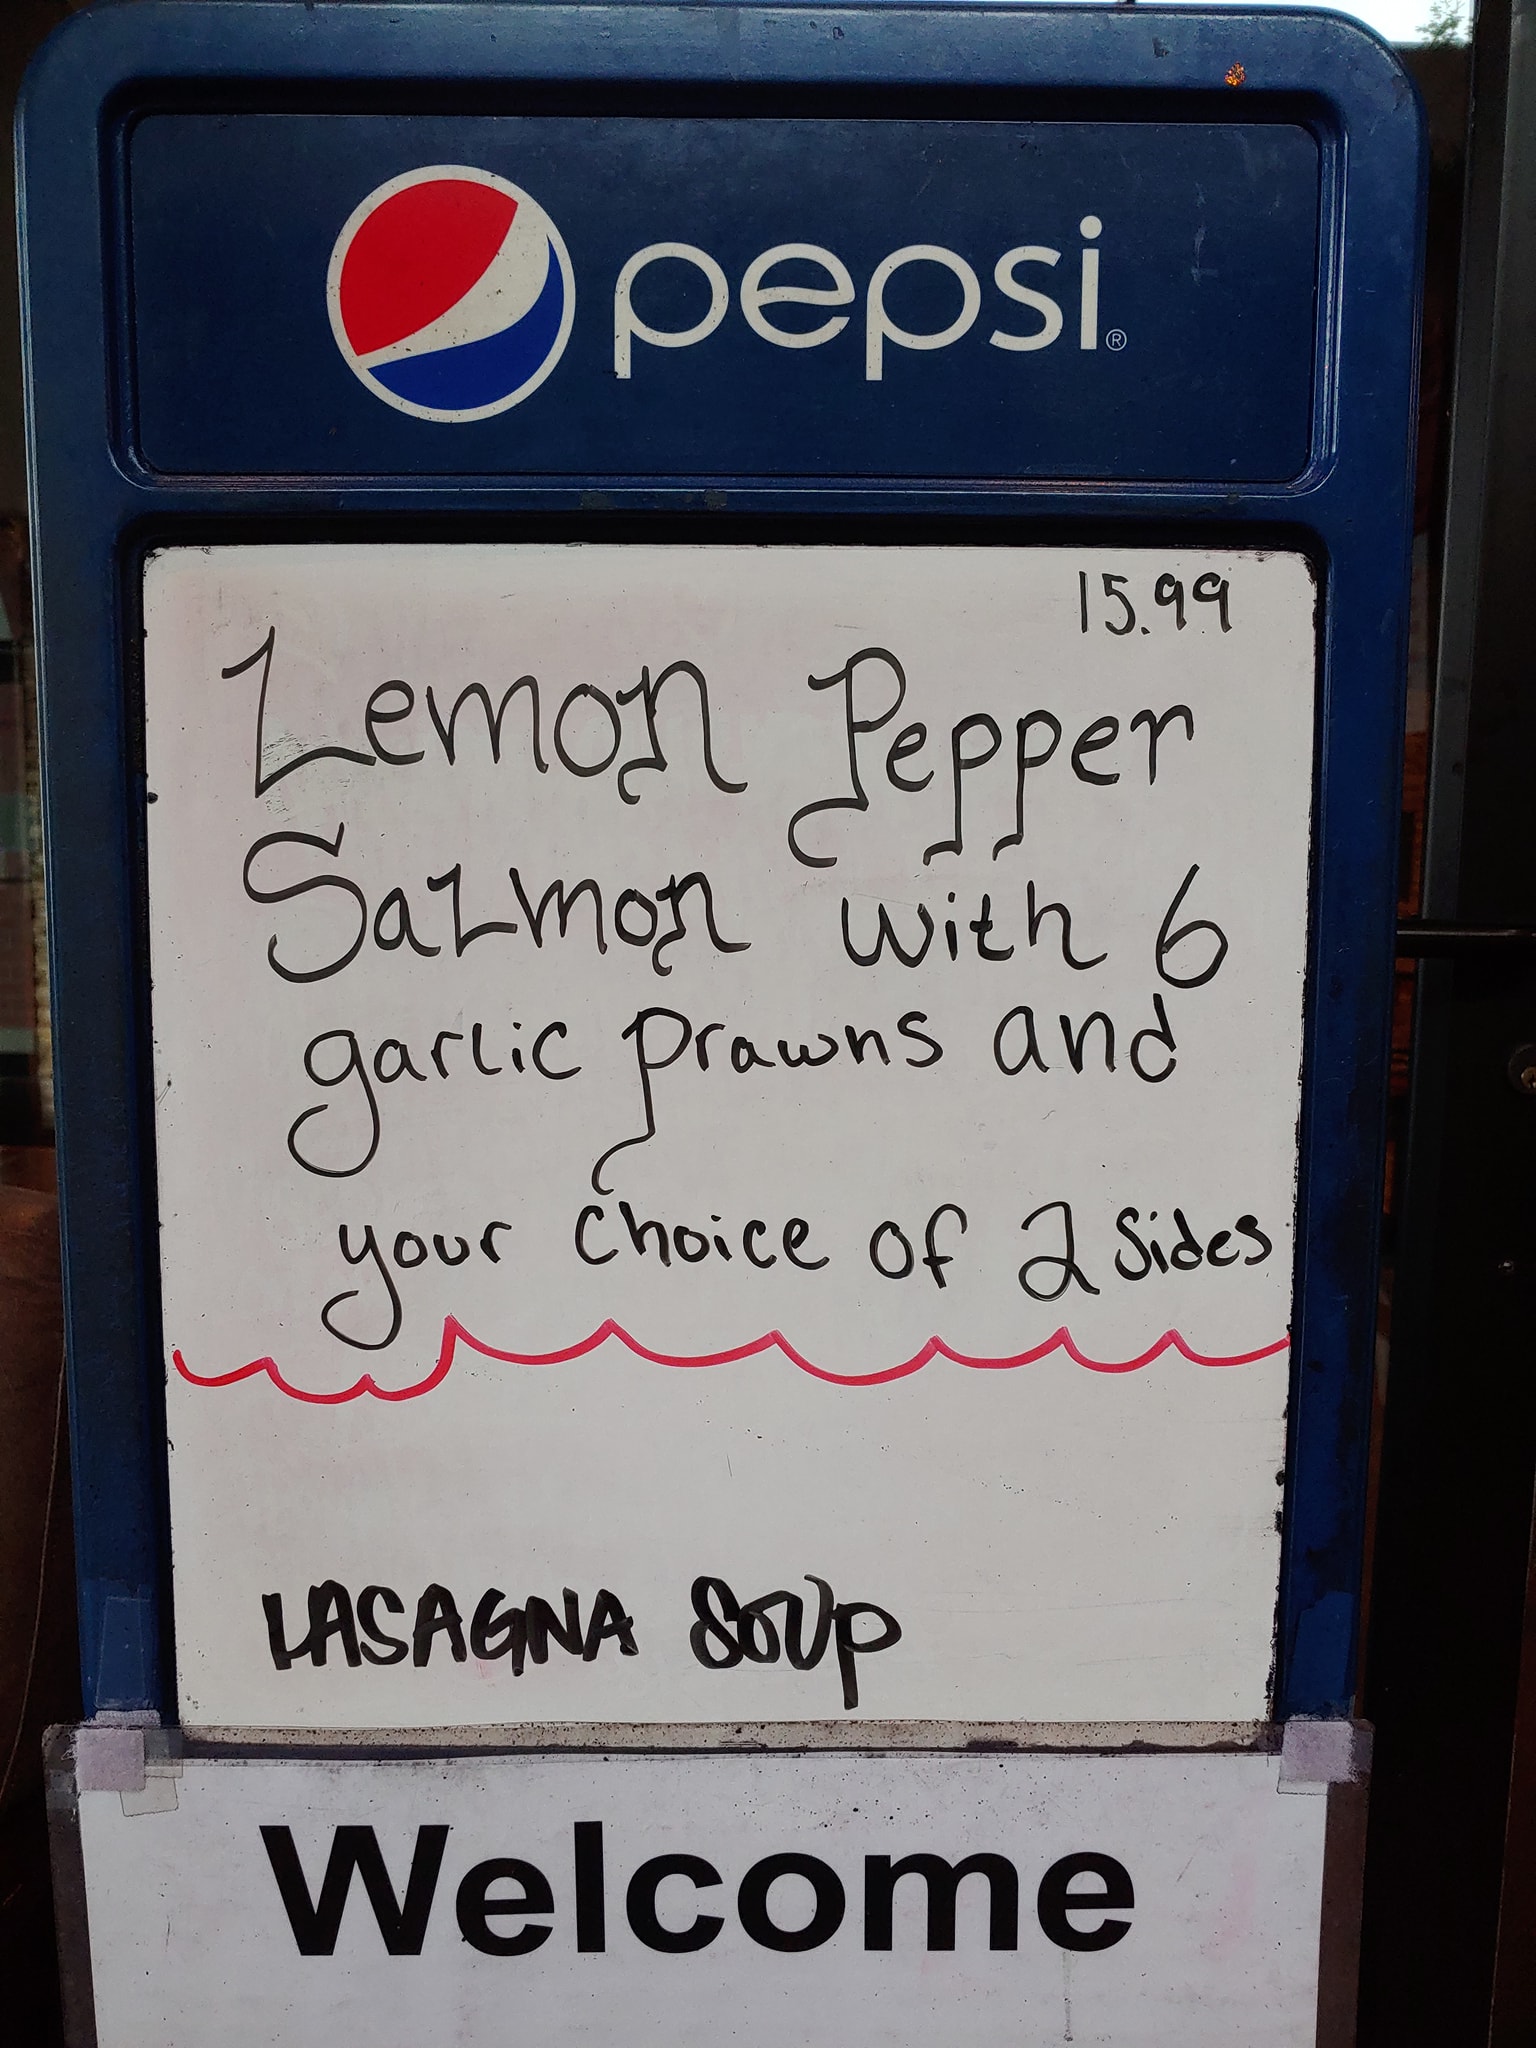 pepsi®
15.99
Lemon Pepper
Salmon with 6
garlic prawns and
your choice of 2 sides
LASAGNA SOUP
Welcome